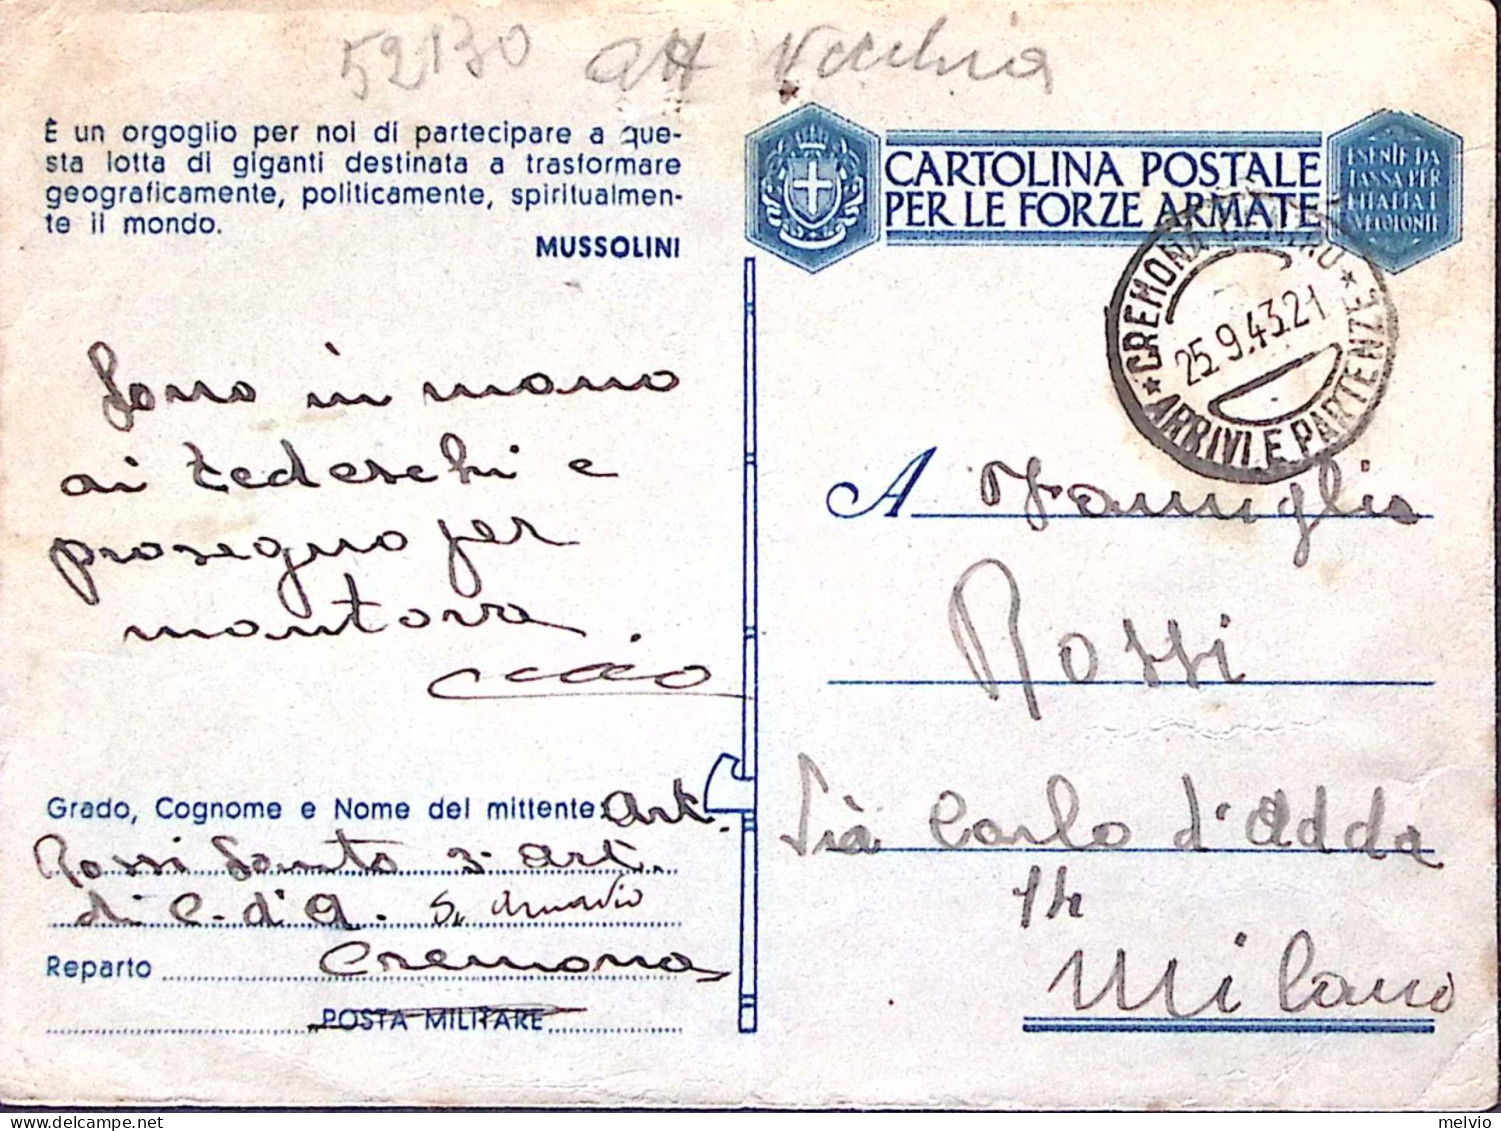 52130
È un orgoglio per noi di partecipare a que-
sta lotta di giganti destinata a trasformare
geograficamente, politicamente, spiritualmen-
te il mondo.
MUSSOLINI
Sono in mano
ai tedeschi e
proseguo per
mantova
ciao
Grado, Cognome e Nome del mittente: Art.
Rossi Santo 3° Art.
di C. d'A.
Reparto Cremona
POSTA MILITARE
CARTOLINA POSTALE
PER LE FORZE ARMATE
ESENTE DA
TASSA PER
L'ITALIA E
COLONIE
CREMONA
25.9.43.21
ARRIVI E PARTENZE
A Famiglia
Rossi
Via Carlo d'Adda
14
Milano
melvio